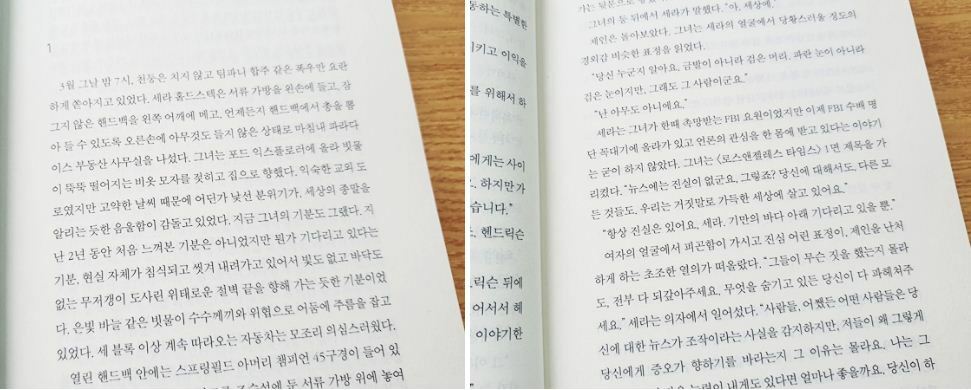 1
3월 그날 밤 7시, 천둥은 치지 않고 팀파니 합주 같은 폭우만 요란
하게 쏟아지고 있었다. 세라 홀드스텍은 서류 가방을 왼손에 들고, 잠
그지 않은 핸드백을 왼쪽 어깨에 메고, 언제든지 핸드백에서 총을 뽑
아 들 수 있도록 오른손에 아무것도 들지 않은 상태로 마침내 파라다
이스 부동산 사무실을 나섰다. 그녀는 포드 익스플로러에 올라 빗물
이 뚝뚝 떨어지는 비옷 모자를 젖히고 집으로 향했다. 익숙한 교외 도
로였지만 고약한 날씨 때문에 어딘가 낯선 분위기가, 세상의 종말을
알리는 듯한 음울함이 감돌고 있었다. 지금 그녀의 기분도 그랬다. 지
난 2년 동안 처음 느껴본 기분은 아니었지만 뭔가 기다리고 있다는
기분, 현실 자체가 침식되고 씻겨 내려가고 있어서 빛도 없고 바닥도
없는 무저갱이 도사린 위태로운 절벽 끝을 향해 가는 듯한 기분이었
다. 은빛 바늘 같은 빗물이 수수께끼와 위협으로 어둠에 주름을 잡고
있었다. 세 블록 이상 계속 따라오는 자동차는 모조리 의심스러웠다.
열린 핸드백 안에는 스프링필드 아머리 챔피언 45구경이 들어 있
조수석에 둔 서류 가방 위에 놓여
동하는 특별한
키고 이익을
를 위해서 하
에게는 사이
. 하지만 가
습니다."
헨드릭슨
릭슨 뒤에
어서서 헤
이야기한
그녀의 등 뒤에서 세라가 말했다. "아, 세상에."
제인은 돌아보았다. 그녀는 세라의 얼굴에서 당황스러울 정도의
경외감 비슷한 표정을 읽었다.
"당신 누군지 알아요. 금발이 아니라 검은 머리, 파란 눈이 아니라
검은 눈이지만, 그래도 그 사람이군요."
"난 아무도 아니에요."
세라는 그녀가 한때 촉망받는 FBI 요원이었지만 이제 FBI 수배 명
단 꼭대기에 올라가 있고 언론의 관심을 한 몸에 받고 있다는 이야기
는 굳이 하지 않았다. 그녀는 〈로스앤젤레스 타임스〉 1면 제목을 가
리켰다. "뉴스에는 진실이 없군요. 그렇죠? 당신에 대해서도, 다른 모
든 것들도. 우리는 거짓말로 가득한 세상에 살고 있어요."
"항상 진실은 있어요, 세라. 기만의 바다 아래 기다리고 있을 뿐."
여자의 얼굴에서 피곤함이 가시고 진심 어린 표정이, 제인을 난처
하게 하는 초조한 열의가 떠올랐다. "그들이 무슨 짓을 했는지 몰라
도, 전부 다 되갚아주세요. 무엇을 숨기고 있든 당신이 다 파헤쳐주
세요." 세라는 의자에서 일어섰다. "사람들, 어쨌든 어떤 사람들은 당
신에 대한 뉴스가 조작이라는 사실을 감지하지만, 저들이 왜 그렇게
당신에게 증오가 향하기를 바라는지 그 이유는 몰라요. 나는 그
능력이 내게도 있다면 얼마나 좋을까요. 당신이 하